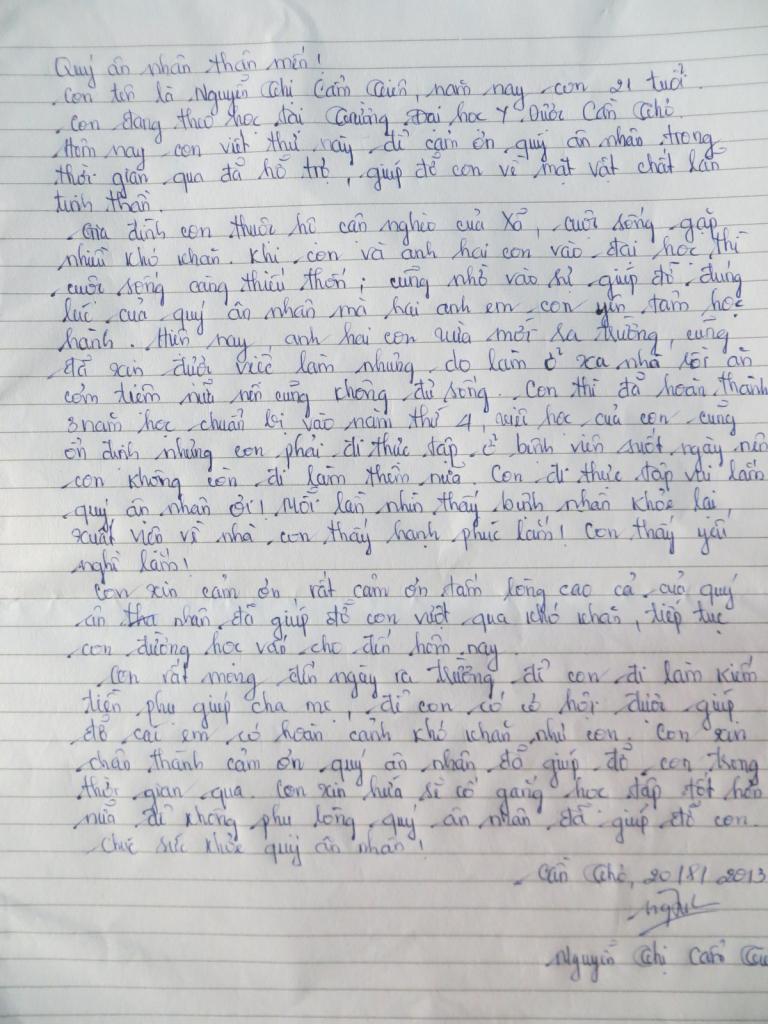 Quý ân nhân thân mến!
Con tên là Nguyễn Thị Cẩm Tiên, năm nay con 21 tuổi.
Con đang theo học tại Trường Đại học Y Dược Cần Thơ.
Hôm nay con viết thư này để cảm ơn quý ân nhân trong
thời gian qua đã hỗ trợ, giúp đỡ con về mặt vật chất lẫn
tinh thần.
Gia đình con thuộc hộ cận nghèo của xã, cuộc sống gặp
nhiều khó khăn. Khi con và anh hai con vào đại học thì
cuộc sống càng thiếu thốn; cũng nhờ vào sự giúp đỡ đúng
lúc của quý ân nhân mà hai anh em con yên tâm học
hành. Hiện nay, anh hai con vừa mới ra trường, cũng
đã xin được việc làm nhưng do làm ở xa nhà rồi ăn
cơm tiệm nữa nên cũng không đủ sống. Con thì đã hoàn thành
3 năm học chuẩn bị vào năm thứ 4, việc học của con cũng
ổn định nhưng con phải đi thực tập ở bệnh viện suốt ngày nên
con không còn đi làm thêm nữa. Con đi thực tập vui lắm
quý ân nhân ơi! Mỗi lần nhìn thấy bệnh nhân khỏe lại,
xuất viện về nhà con thấy hạnh phúc lắm! Con thấy yêu
nghề lắm!
Con xin cảm ơn, rất cảm ơn tấm lòng cao cả của quý
ân nhân đã giúp đỡ con vượt qua khó khăn, tiếp tục
con đường học vấn cho đến hôm nay.
Con rất mong đến ngày ra trường để con đi làm kiếm
tiền phụ giúp cha mẹ, để con có cơ hội được giúp
đỡ các em có hoàn cảnh khó khăn như con. Con xin
chân thành cảm ơn quý ân nhân đã giúp đỡ con trong
thời gian qua. Con xin hứa sẽ cố gắng học tập tốt hơn
nữa để không phụ lòng quý ân nhân đã giúp đỡ con.
Chúc sức khỏe quý ân nhân!
Cần Thơ, 20/8/2013
Nguyễn Thị Cẩm